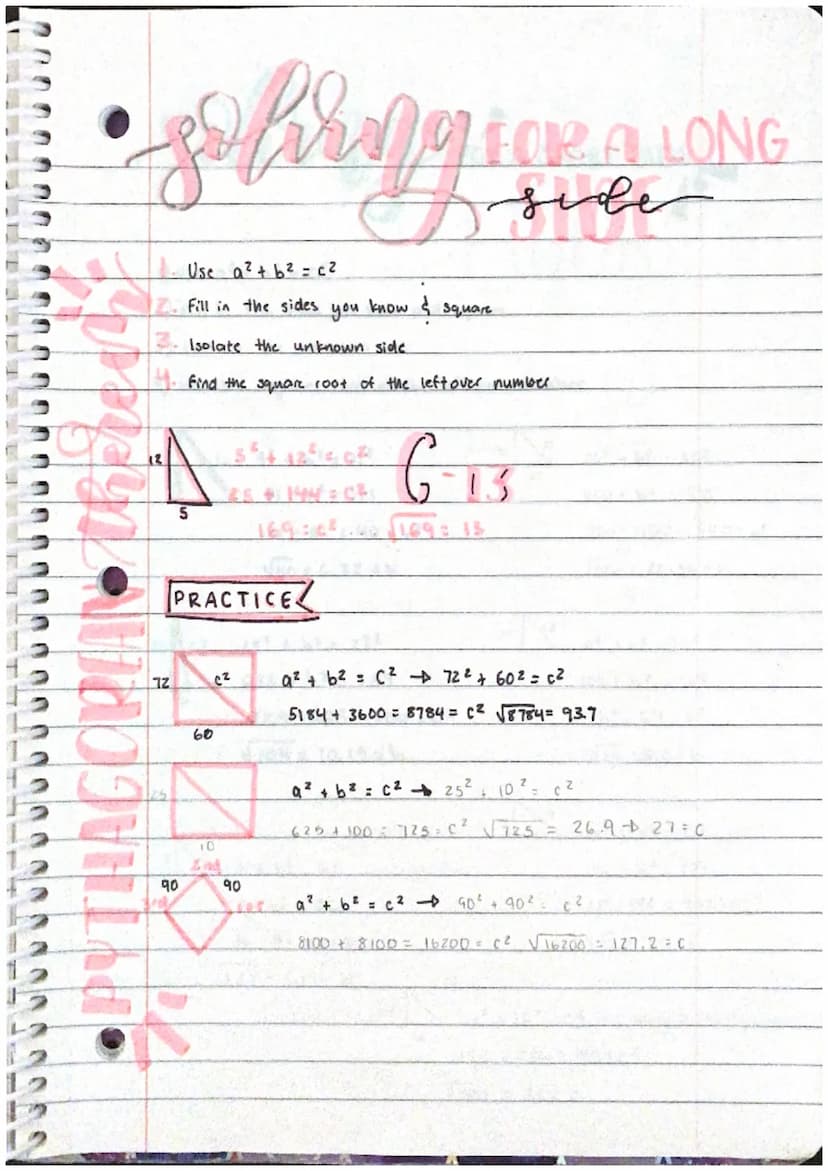 solving FOR A LONG
SIDE
side
PYTHAGOREAN theorem
1. Use a² + b² = c²
2. Fill in the sides you know & square
3. Isolate the unknown side
4. Find the square root of the leftover number
12
5
5² + 12² = c²
25 + 144 = c²
169 = c² √169 = 13
C = 13
PRACTICE
72
c²
60
a² + b² = c² → 72² + 60² = c²
5184 + 3600 = 8784 = c² √8784 = 93.7
25
10
a² + b² = c² → 25² + 10² = c²
625 + 100 = 725 = c² √725 = 26.9 → 27 = c
2nd
90 90
3rd
a² + b² = c² → 90² + 90² = c²
8100 + 8100 = 16200 = c² √16200 = 127.2 = c